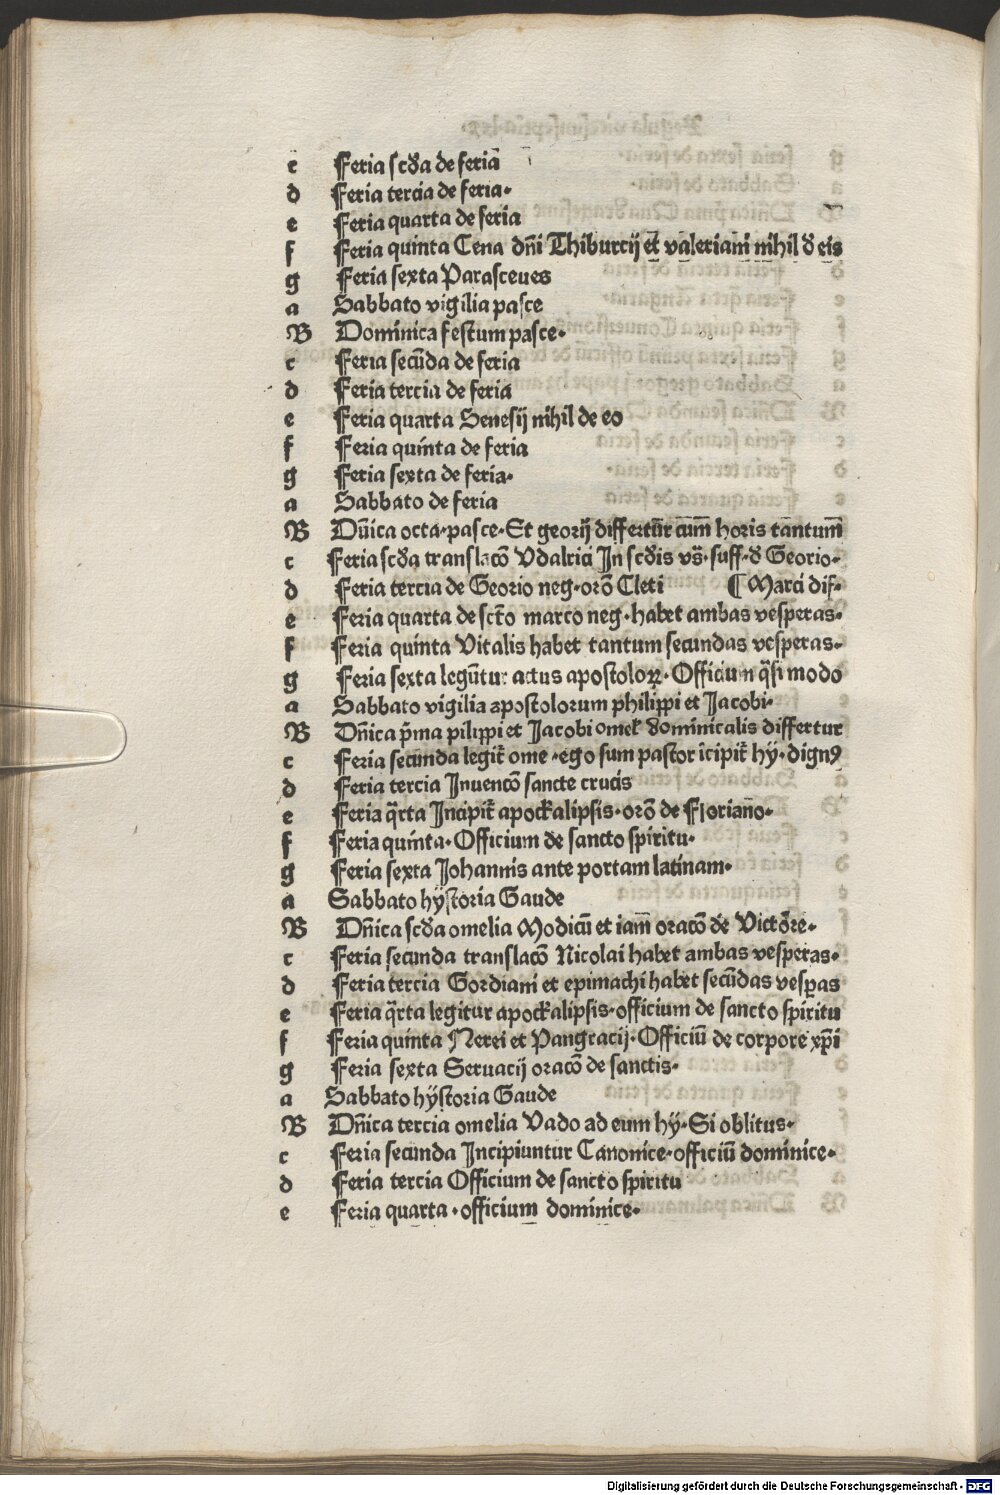 c Feria scđa de feria
d Feria tercia de feria·
e Feria quarta de feria
f Feria quinta Cena dn̄i Thiburcij et valeriani nihil đ eis
g Feria sexta Parasceues
a Sabbato vigilia pasce
B Dominica festum pasce·
c Feria secūda de feria
d Feria tercia de feria
e Feria quarta Senesij nihil de eo
f Feria quinta de feria
g Feria sexta de feria·
a Sabbato de feria
B Dn̄ica octa·pasce·Et georij differtur̄ cum̄ horis tantum̄
c Feria scđa translacō Vdalrici In scđis vs̄·suff·đ Georio·
d Feria tercia de Georio neg·orō Cleti ¶ Marci dif·
e Feria quarta de sct̄o marco neg·habet ambas vesperas·
f Feria quinta Vitalis habet tantum secundas vesperas·
g Feria sexta legūtur actus apostoloꝝ·Officium q̄si modo
a Sabbato vigilia apostolorum philippi et Jacobi·
B Dn̄ica p̄ma pilippi et Jacobi omel̄ dominicalis differtur
c Feria secunda legit̄ ome·ego sum pastor īcipit̄ hy·dignꝯ
d Feria tercia Inuencō sancte crucis
e Feria q̄rta Incipit̄ apock̄alipsis·orō de Floriano·
f Feria quinta·Officium de sancto spiritu·
g Feria sexta Johannis ante portam latinam·
a Sabbato hystoria Gaude
B Dn̄ica scđa omelia Modicū et iam̄ oracō de Victore·
c Feria secunda translacō Nicolai habet ambas vesperas·
d Feria tercia Gordiani et epimachi habet secūdas vesꝑas
e Feria q̄rta legitur apock̄alipsis·officium de sancto spiritu
f Feria quinta Nerei et Pangracij·Officiū de corpore xp̄i
g Feria sexta Seruacij oracō de sanctis·
a Sabbato hystoria Gaude
B Dn̄ica tercia omelia Vado ad eum hy·Si oblitus·
c Feria secunda Incipiuntur Canonice·officiū dominice·
d Feria tercia Officium de sancto spiritu
e Feria quarta·officium dominice·
Digitalisierung gefördert durch die Deutsche Forschungsgemeinschaft - DFG